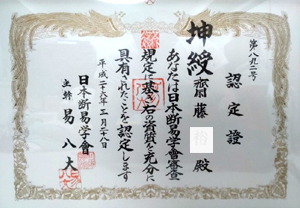 認定證
坤綬
齋藤
裕
殿
あなたは日本断易学會審査
規定に基き右の資質を充分に
具有されたことを認定します
平成二十六年三月二十八日
日本断易学會
主幹 易八大